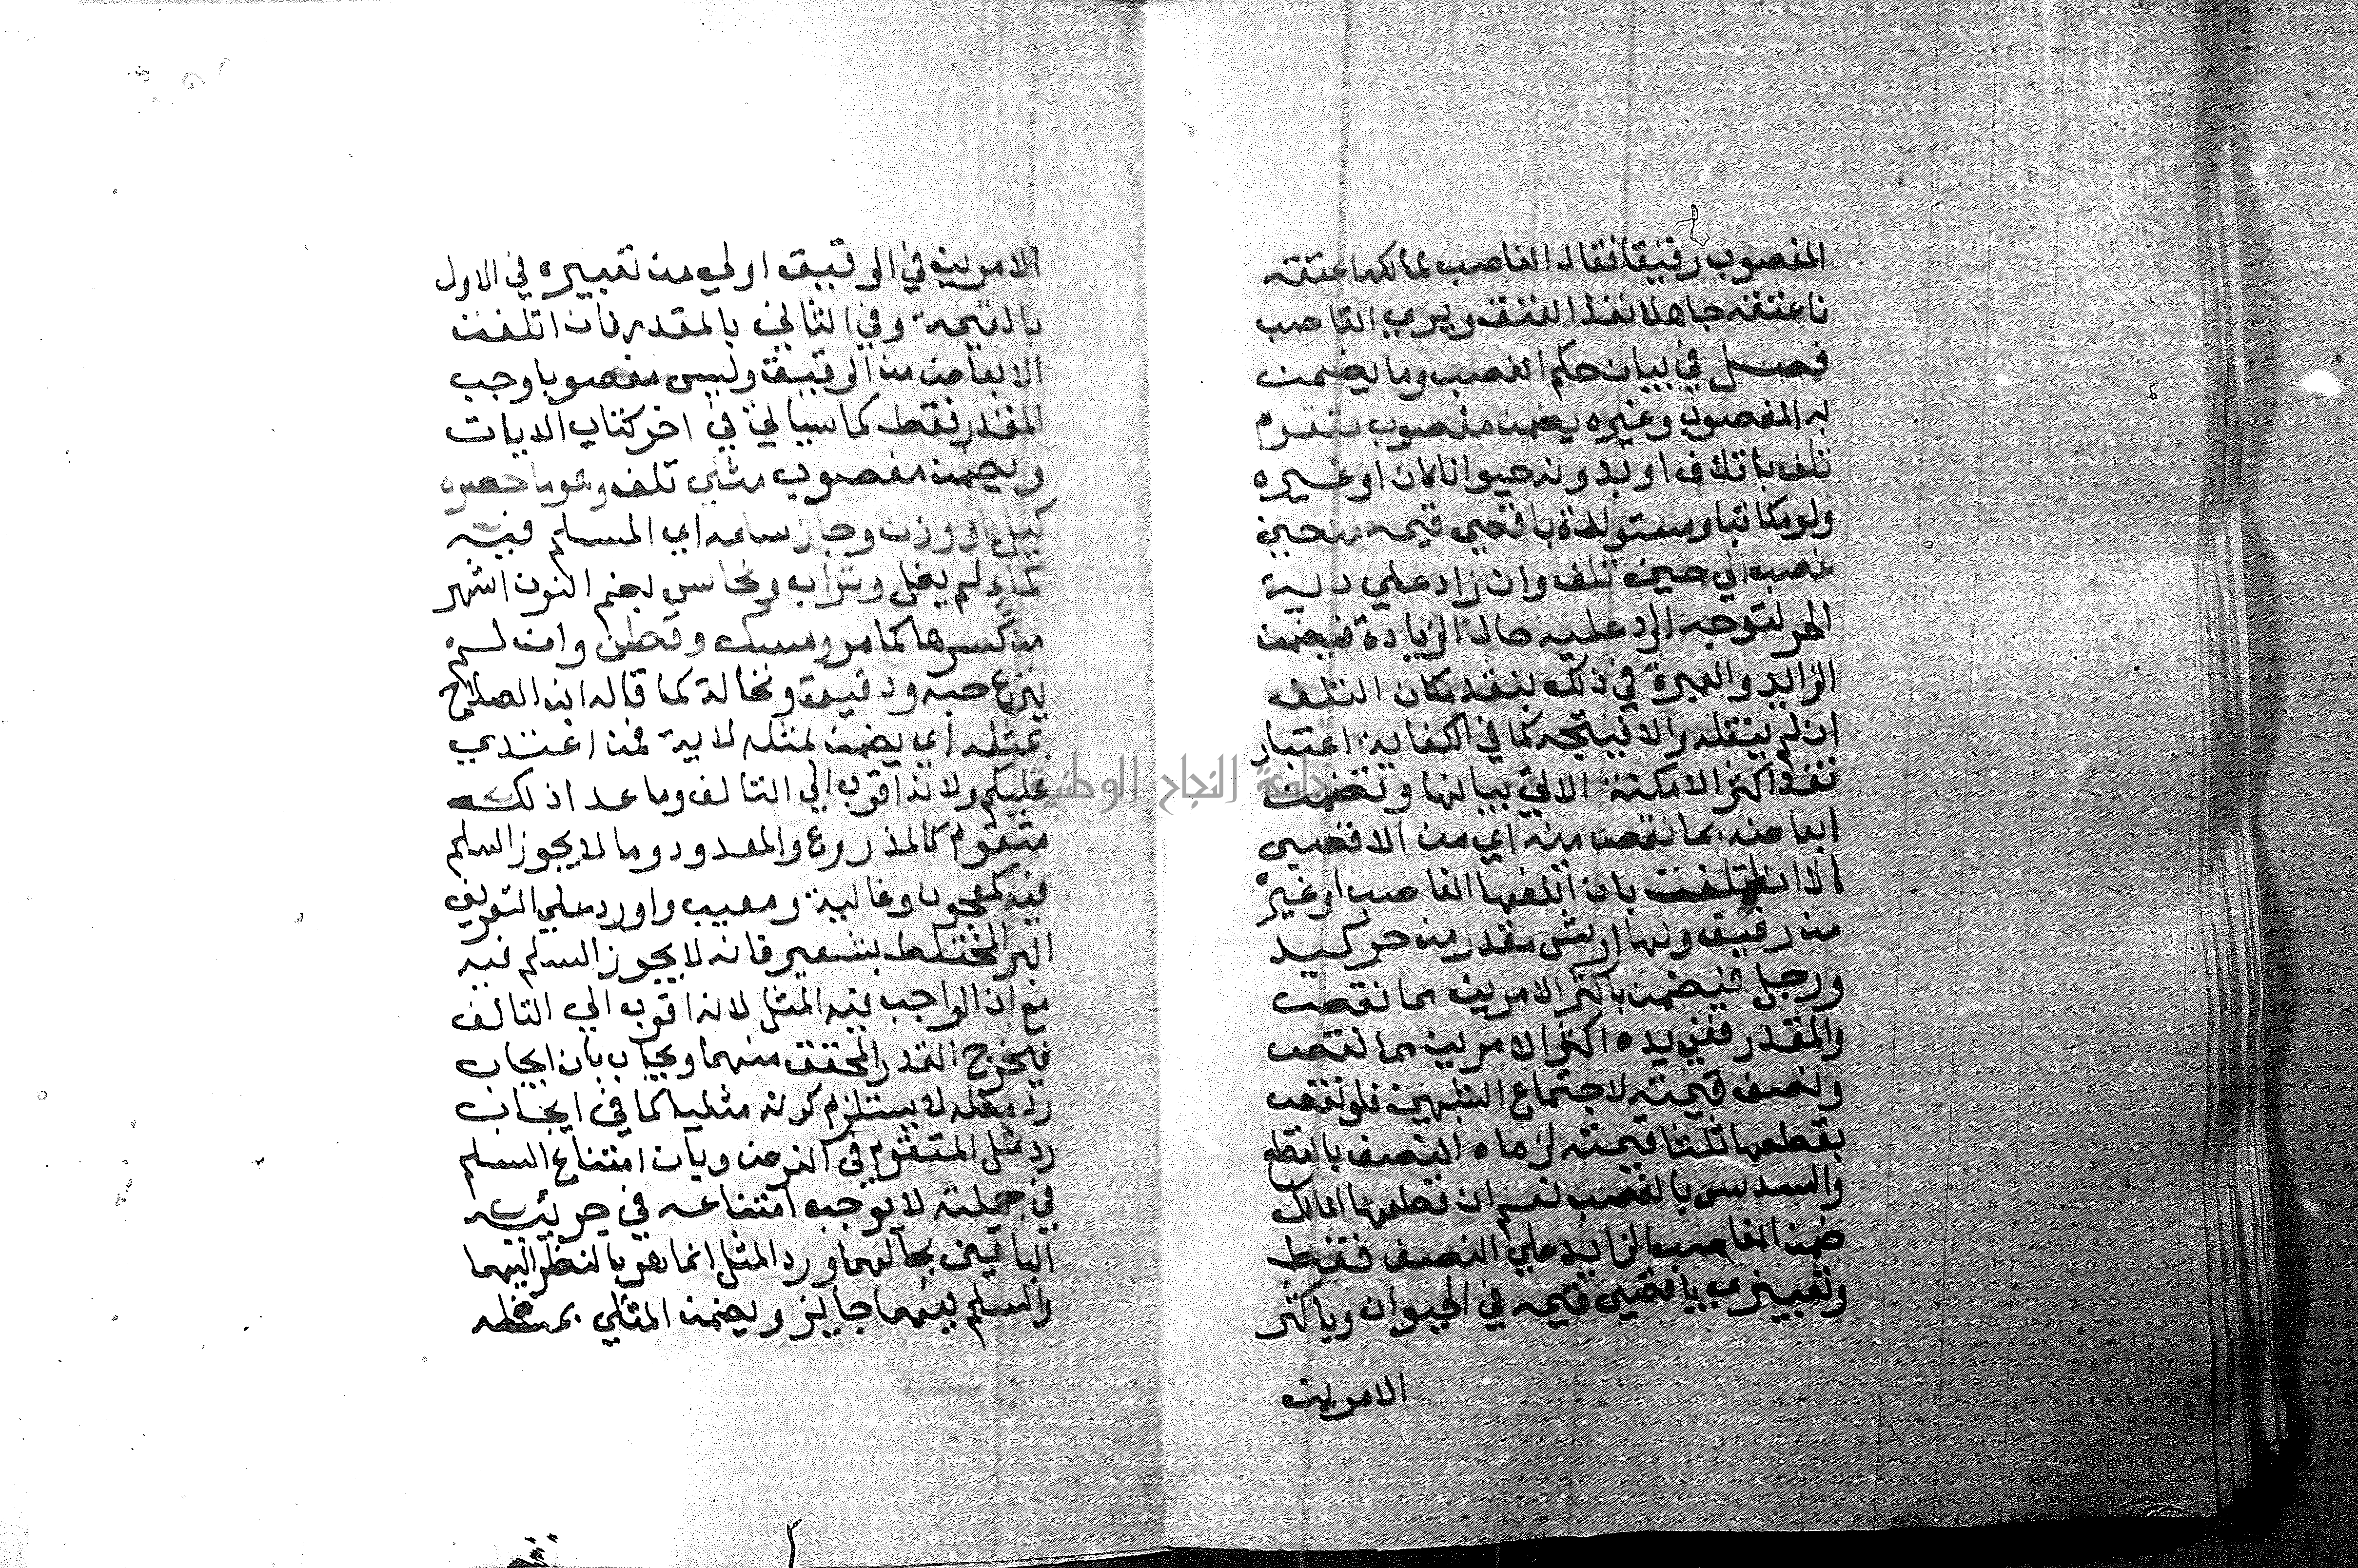 المغصوب رقيقا فقال الغاصب لمالكه اعتقه
فاعتقه جاهلا نفذ العتق ويبري الغاصب
فصل في بيان حكم الغصب وما يضمن
به المغصوب وغيره يضمن مغصوب متقوم
تلف باتلاف او بدونه حيوانا كان او غيره
ولو مكاتبا ومستولدة باقصي قيمه من حين
غصب الي حين تلف وان زاد علي دية
الحر لتوجه الرد عليه حال الزيادة فيضمن
الزايد والعبرة في ذلك بنقد مكان التلف
ان لم ينقله والا فيتجه كما في الكفاية اعتبار
نقد اكثر الامكنة الاتي بيانها وتضمن
ابعاضه بما نقص منه اي من الاقصي
الا ان تلفت بان اتلفها الغاصب او غيره
من رقيق ولها ارش مقدر من حر كيد
ورجل فيضمن باكثر الامرين مما نقص
والمقدر ففي يده اكثر الامرين مما نقص
ونصف قيمته لاجتماع الشبهين فلو نقص
بقطعها ثلثا قيمته لزماه النصف بالقطع
والسدس بالغصب نعم ان قطعها المالك
ضمن الغاصب الزايد علي النصف فقط
وتعبيري باقصي قيمه في الحيوان وباكثر
الامرين
الامرين في الرقيق اولي من تعبيره في الاول
بالقيمة وفي الثاني بالمقدر فان اتلفت
الابعاض من الرقيق وليس مغصوبا وجب
المقدر فقط كما سياتي في اخر كتاب الديات
ويضمن مغصوب مثلي تلف وهو ما حصره
كيل او وزن وجاز سلمه اي المسلم فيه
كماء لم يغل وتراب ونحاس بضم النون اشهر
من كسرها كما مر ومسك وقطن وان لم
ينزع حبه ودقيق ونخالة كما قاله ابن الصلاح
بمثله اي يضمن بمثله لاية فمن اعتدي
عليكم ولانه اقرب الي التالف وما عدا ذلك
متقوم كالمذروع والمعدود وما لا يجوز السلم
فيه كمعجون وغالية ومعيب واورد علي التعريف
البر المختلط بشعير فانه لا يجوز السلم فيه
مع ان الواجب فيه المثل لانه اقرب الي التالف
فيخرج القدر المحقق منهما ويجاب بان ايجاب
رد مثله لا يستلزم كونه مثليا كما في ايجاب
رد مثل المتقوم في القرض وبان امتناع السلم
في جملته لا يوجب امتناعه في جزئيه
الباقيين بحالهما ورد المثل انما هو بالنظر اليهما
والسلم فيهما جايز ويضمن المثلي بمثله
جامعة النجاح الوطنية